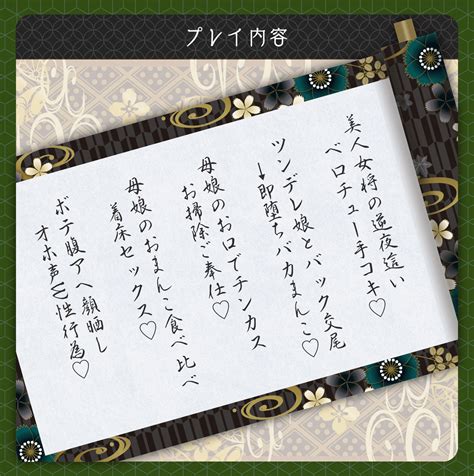 プレイ内容
美人女将の逆夜這い
ベロチュー手コキ♡
ツンデレ娘とバック交尾
↓即堕ちバカまんこ♡
母娘のお口でチンカス
お掃除ご奉仕♡
母娘のおまんこ食べ比べ
着床セックス♡
ボテ腹アヘ顔晒し
オホ声W性行為♡